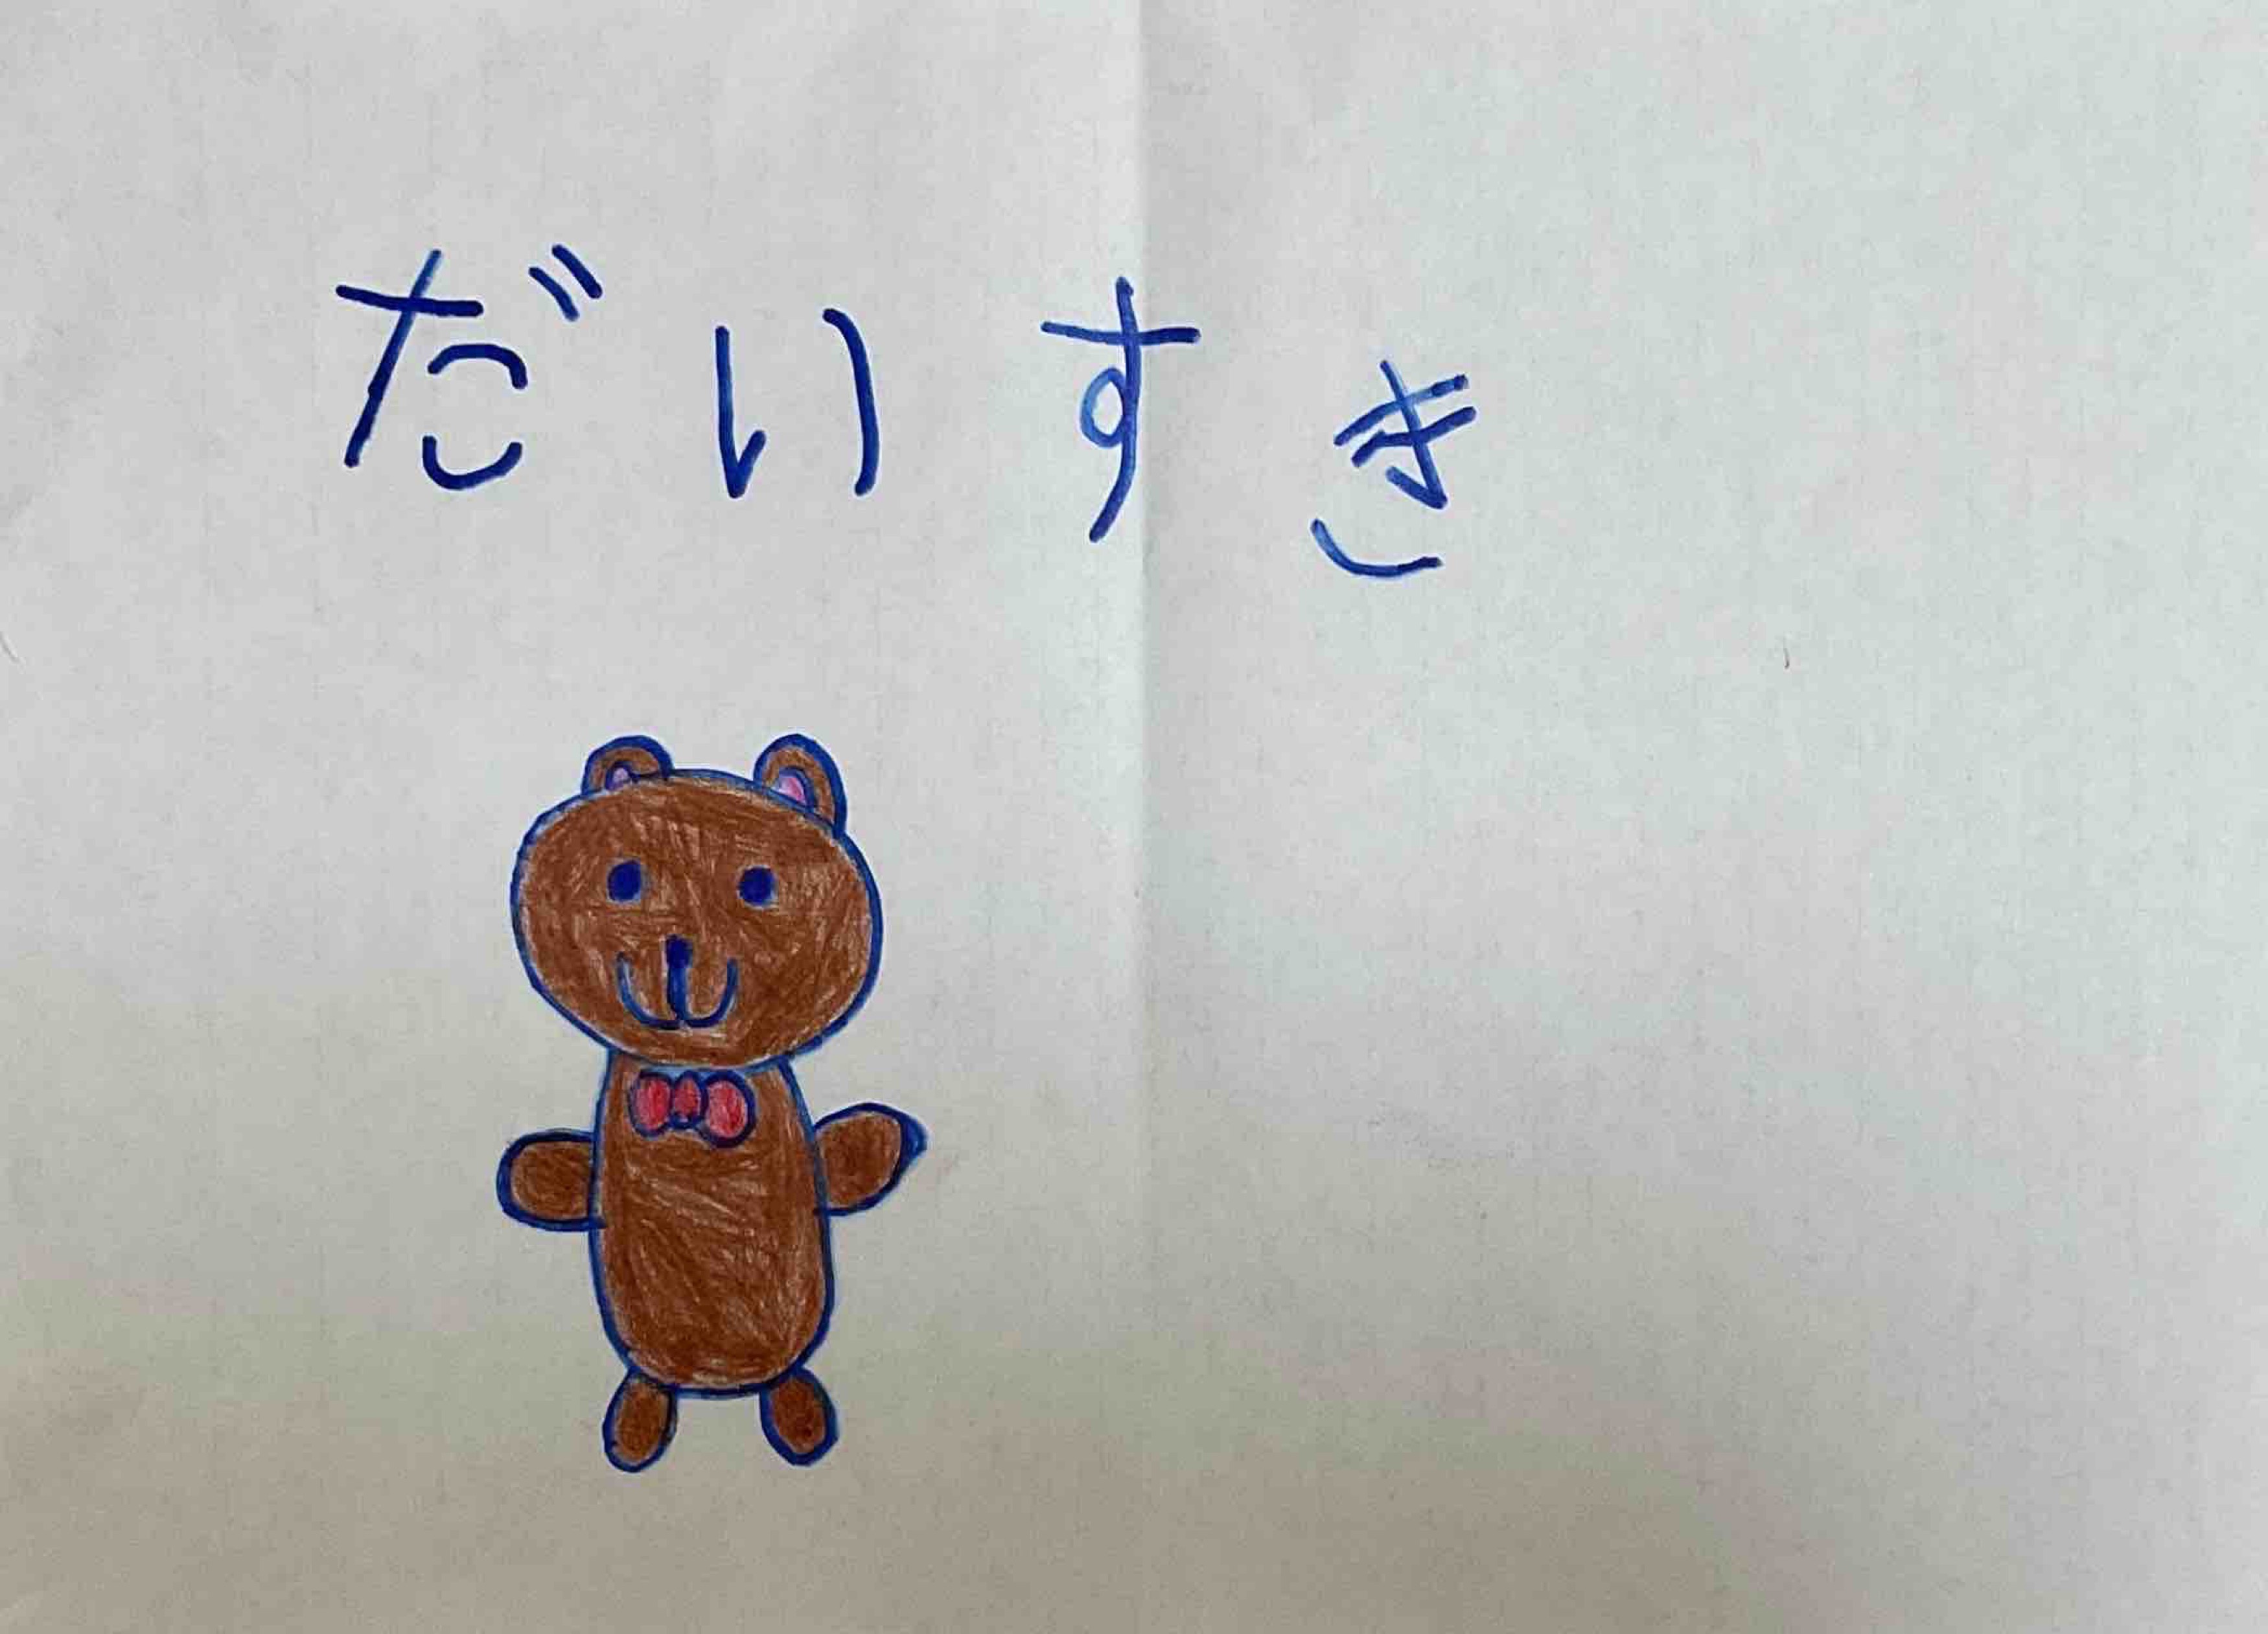 だいすき